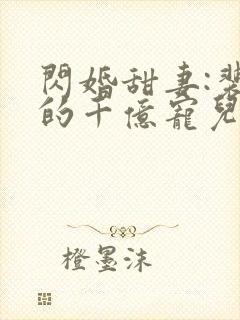 閃婚甜妻:裴
的千億寵兒
橙墨沫